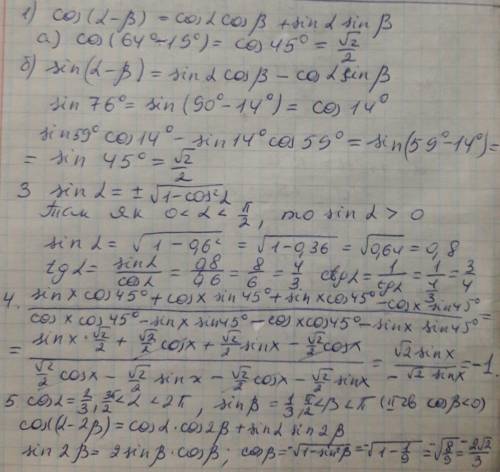 1) cos(α-β) = cosα cosβ + sinα sinβ
а) cos(64°-19°) = cos 45° = √2/2
б) sin(α-β) = sinα cosβ - cosα sinβ
sin 76° = sin (90° - 14°) = cos 14°
sin 59° cos 14° - sin 14° cos 59° = sin(59° - 14°) =
= sin 45° = √2/2
3 sinα = ±√(1-cos²α)
Так як 0 < α < π/2, то sinα > 0
sinα = √(1 - 0,6²) = √(1-0,36) = √0,64 = 0,8
tgα = sinα/cosα = 0,8/0,6 = 8/6 = 4/3 ctgα = 1/tgα = 1/(4/3) = 3/4
4. (sinx cos45° + cosx sin45° + sinx cos45° - cosx sin45°)/(cosx cos45° - sinx sin45° - cosx cos45° - sinx sin45°) =
= (sinx·√2/2 + √2/2 cosx + √2/2 sinx - √2/2 cosx)/(√2/2 cosx - √2/2 sinx - √2/2 cosx - √2/2 sinx) = √2 sinx/(-√2 sinx) = -1.
5 cosα = 2/3, 3π/2 < α < 2π, sinβ = 1/3, π/2 < β < π (II чв cosβ<0)
cos(α-2β) = cosα·cos2β + sinα sin2β
sin2β = 2sinβ·cosβ; cosβ = -√(1-sin²β) = -√(1-1/9) = -√(8/9) = -2√2/3